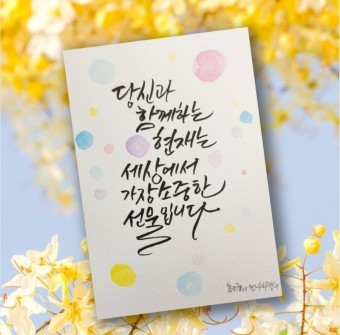 당신과
함께하는
현재는
세상에서
가장소중한
선물입니다